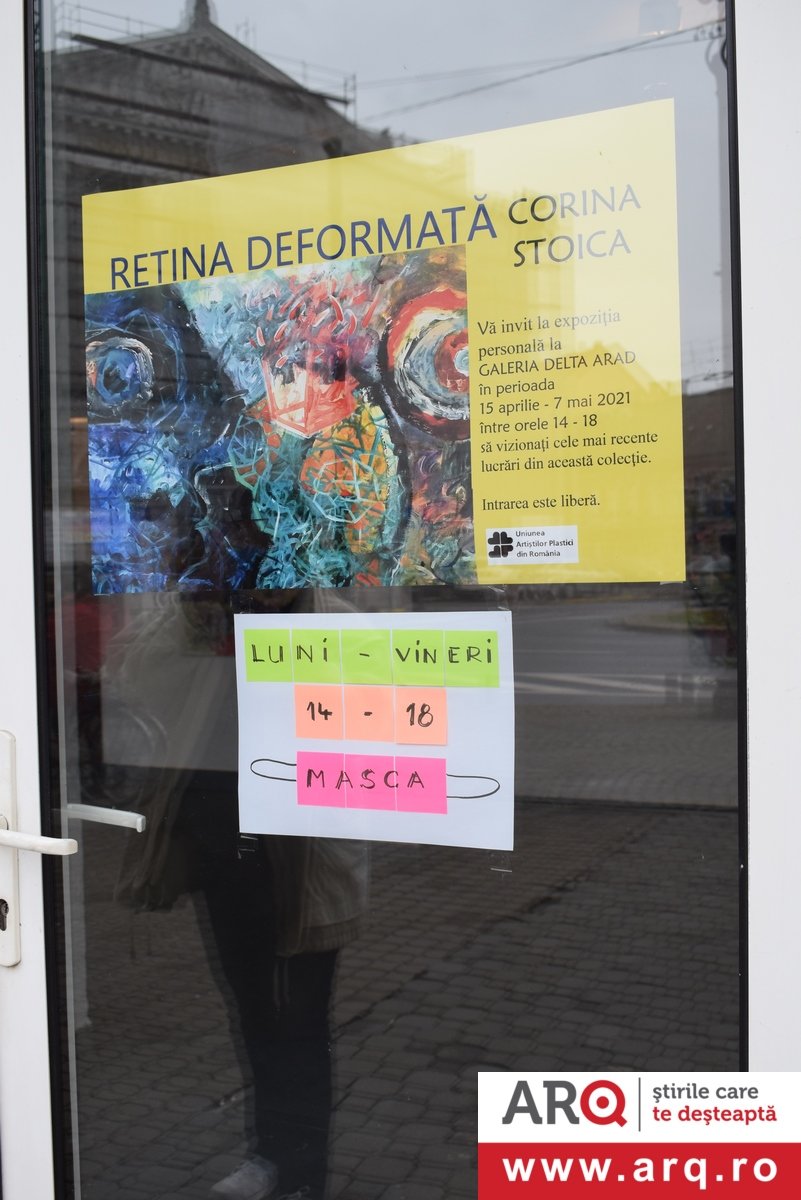 RETINA DEFORMATĂ
CORINA
STOICA
Vă invit la expoziția
personală la
GALERIA DELTA ARAD
în perioada
15 aprilie - 7 mai 2021
între orele 14 - 18
să vizionați cele mai recente
lucrări din această colecție.
Intrarea este liberă.
Uniunea
Artiștilor Plastici
din România
LUNI - VINERI
14 - 18
MASCA
ARQ
știrile care
te deșteaptă
www.arq.ro